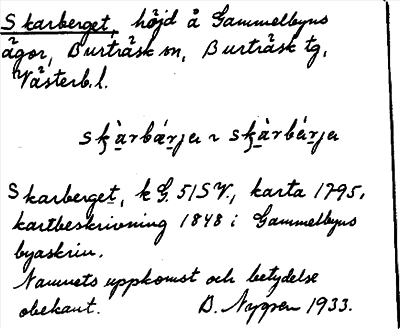 Skarberget, höjd å Gammelbyns
ägor, Burträsk sn, Burträsk tg,
Västerb. l.
Skarberget, k G. 51 SV., karta 1795,
kartbeskrivning 1848 i Gammelbyns
byaskrin.
Namnets uppkomst och betydelse
obekant. B. Nygren 1933.